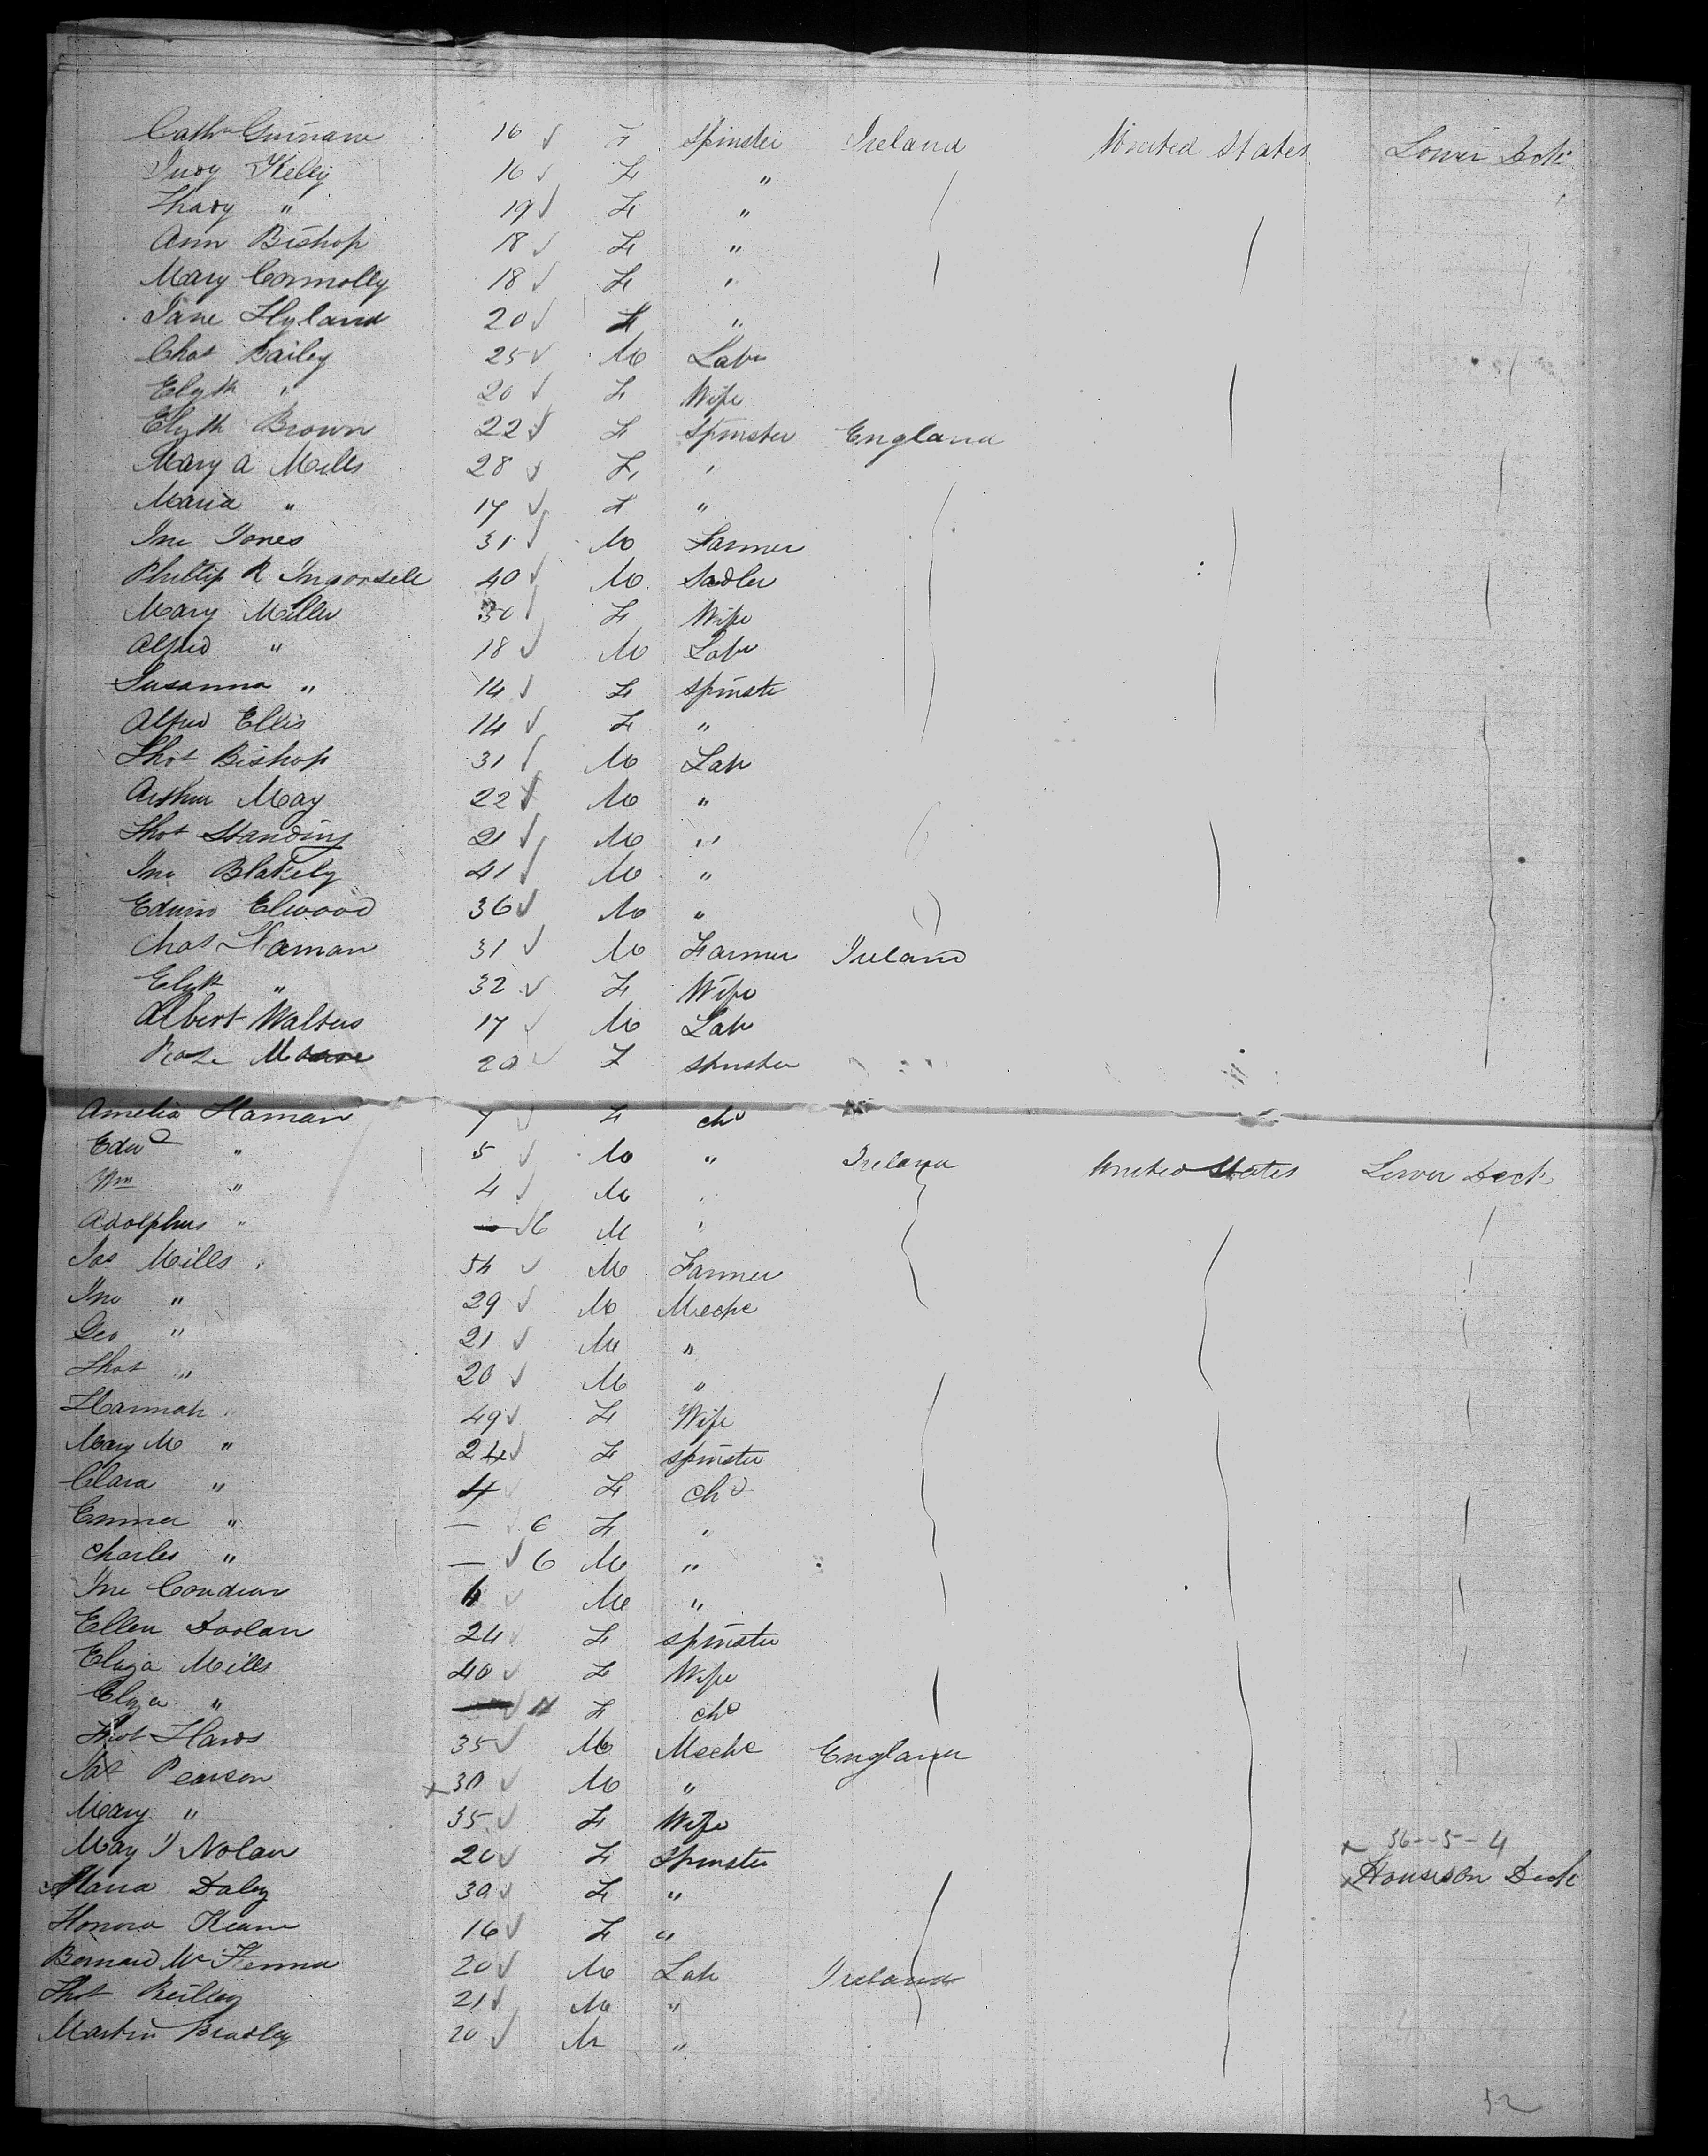 Cathn Guinane 16 F Spinster Ireland United States Lower Deck
Judy Kelly 16 F "
Thady " 19 F "
Ann Bishop 18 F "
Mary Connolly 18 F "
Jane Hyland 20 F "
Chas Bailey 25 M Labr
Elizth " 20 F Wife
Elizth Brown 22 F Spinster England
Mary A Mills 28 F "
Maria " 17 F "
Jno Jones 31 M Farmer
Phillip R Ingorsell 40 M Sadler
Mary Miller 30 F Wife
Alfred " 18 M Labr
Susanna " 14 F Spinste
Alfred Ellis 14 F "
Thos Bishop 31 M Labr
Arthur May 22 M "
Thos Standing 21 M "
Jno Blakely 41 M "
Edwin Elwood 36 M "
Chas Haman 31 M Farmer Ireland
Elizth " 32 F Wife
Albert Walters 17 M Labr
Rose Moore 20 F Spinster
Amelia Haman 7 F chd
Edwd " 5 M " Ireland United States Lower Deck
Wm " 4 M "
Adolphus " — 6 M "
Jas Mills 54 M Farmer
Jno " 29 M Mechc
Geo " 21 M "
Thos " 20 M "
Hannah " 49 F Wife
Mary M " 24 F Spinster
Clara " 4 F chd
Emma " — 6 F "
Charles " — 6 M "
Jno 4 M "
Ellen Doolan 24 F Spinster
Eliza Mills 40 F Wife
Eliza " — F chd
Thos Haws 35 M Mechc England
Jas Pearson x 30 M "
Mary " 35 F Wife
May J Nolan 20 F Spinster x 36--5-4
Maria Daley 30 F " x House on Deck
Honora Keane 16 F "
Bernard McKenna 20 M Labr Ireland
Thos Reilley 21 M "
Martin Bradley 20 M "
52